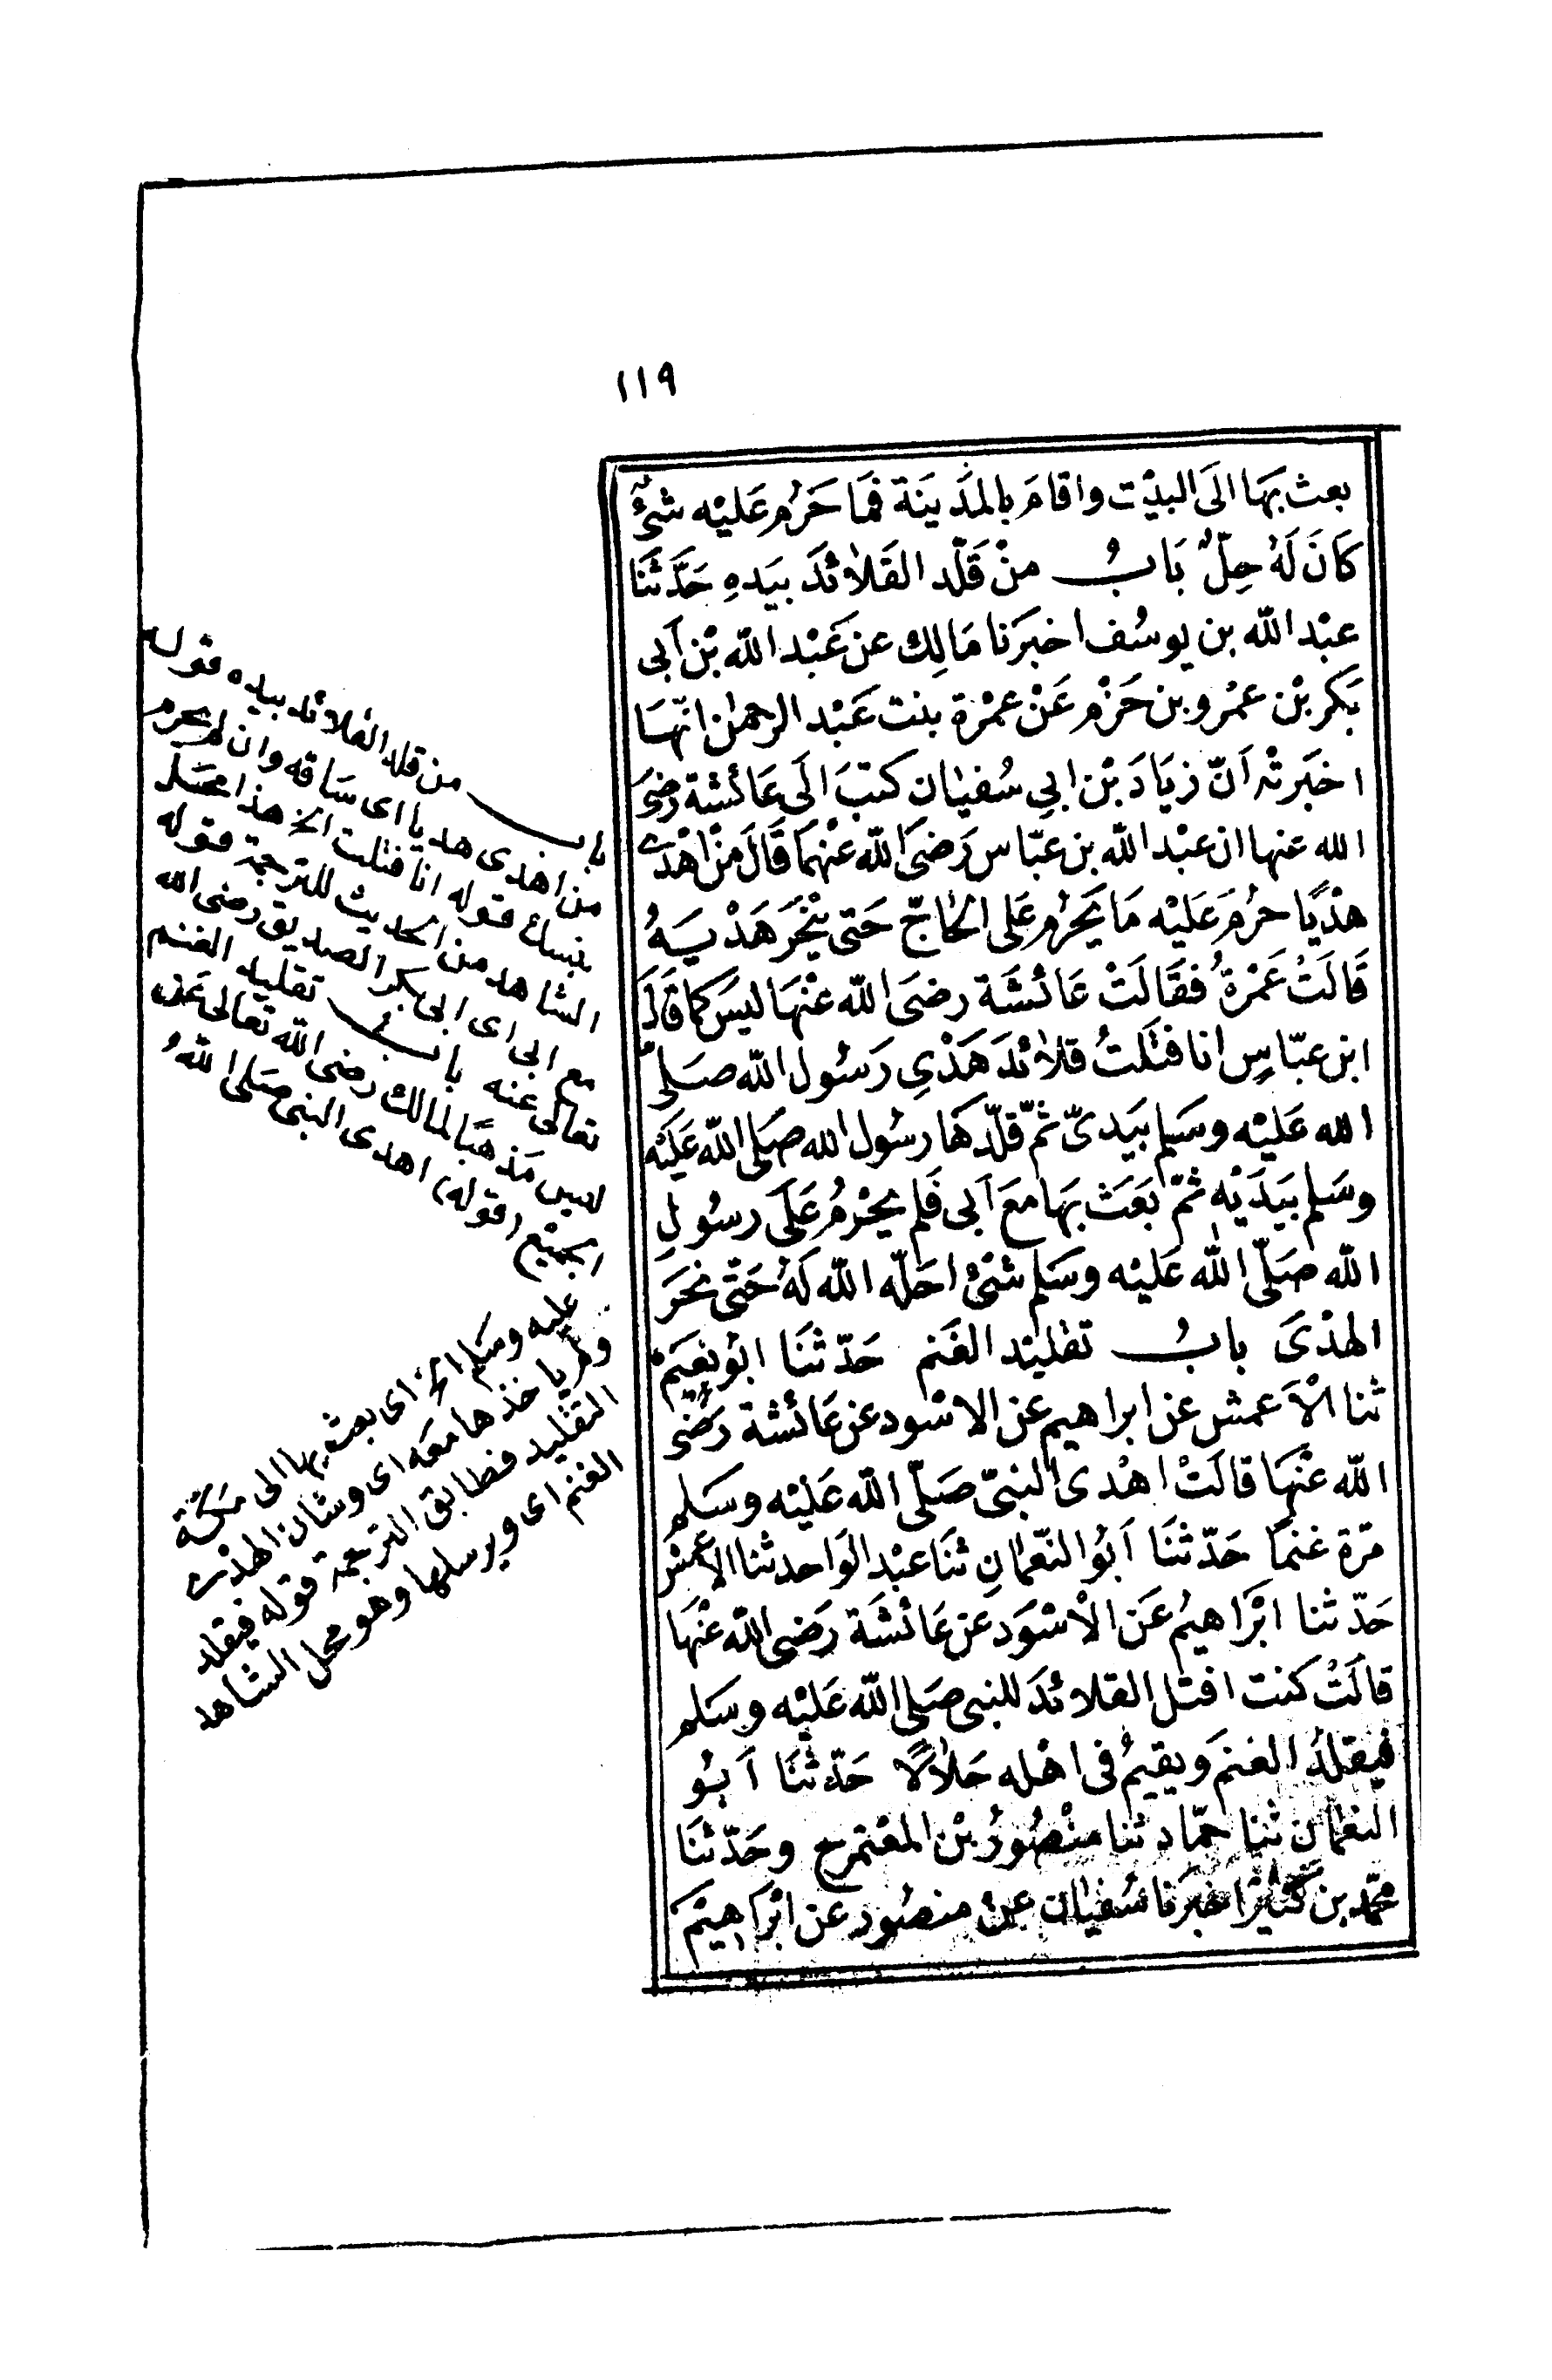 ١١٩
بعث بهَا الَى البيْت واقامَ بالمَدِينَة فمَا حَرُم عَليْه شئٌ
كَانَ لَهُ حِلٌّ بَابُ منْ قَلّد القَلائدَ بيَدهِ حَدَّثنَا
عبْد الله بن يوسُف اخبَرَنا مَالِك عن عَبْد الله بْن اَبى
بَكر بْن عمْرو بن حَزْم عَنْ عمْرة بنت عَبْد الرحمٰن انّهَا
اخبَرتْه اَنّ زيَادَ بْن ابِي سُفيٰان كتبَ الَى عَائشة رَضىَ
الله عنها ان عبْد الله بن عبّاس رَضىَ الله عنْهمَا قَالَ منْ اهْدَى
هدْيًا حرُمَ عَليْه مَا يَحرُم عَلى الحَاجّ حَتى يُنْحَرَ هَدْيَهُ
قَالَتْ عَمْرةُ فقَالَتْ عَائشَة رضىَ الله عنْهَا ليسَ كما قَالَ
ابن عبّاسٍ انا فتَلتُ قلائدَ هَدْيِ رَسُول الله صَلى
الله عَليْه وسَلم بيَدىّ ثمّ قلّدهَا رسُول الله صَلى الله عَليْه
وسَلم بيَدَيْه ثمّ بَعَث بهَا معَ اَبى فَلم يحْرمُ عَلَى رسُولِ
الله صَلّى الله عَليْه وسَلم شئْ احَلّه الله لَهُ حَتّى نحَرَ
الهدْىَ بابُ تقليْد الغَنم حَدّثنَا ابُو نعَيمْ
ثنا الْاَعمش عن ابراهيم عن الاسْود عن عَائشة رَضىَ
الله عنْهَا قالَتْ اهْدى النبىّ صَلّى الله عَليْه وسَلم
مَرّة غنمًا حَدّثنَا اَبُو النّعْمٰانِ ثنَا عبْد الوَاحد ثنا الاعْمش
حَدّثنا ابْرَاهيمُ عَن الْاسْوَد عن عَائشَة رَضى الله عنْهَا
قالَتْ كنت افتل القلائدَ للنبى صَلى الله عَليْه وسَلم
فيقلدُ الغنمَ ويقيمُ فى اهْله حَلالًا حَدّثنَا اَبُو
النعْمٰان ثنا حمّاد ثنا منْصُورُ بْن المعْتمر ح وحَدّثنَا
محمّد بن كثيرْ اخبَرنا سُفيٰان عنْ منصُور عن ابْرَاهيْمَ
باب من قلد القلائد بيده قوله
من اهدى هديا اى سَاقه وان لم يحرم
بنسك قوله انا فتلت الخ هذا محَل
الشاهد من الحديث للترجمة قوله
مع ابى اى ابى بكر الصديق رضى الله
تعالى عنه باب تقليد الغنم
ليس مَذهبًا لمالك رضى الله تعالى عَنه
(قوله) اهدى النبى صَلى اللهُ
عليه وسَلم الخ اى بعث بها الى مَكّة
ولم ياخذها معَه اى وشان الهدْى
التقليد فطابق الترجمة قوله فيقلد
الغنم اى ويرسلها وهو محل الشاهد